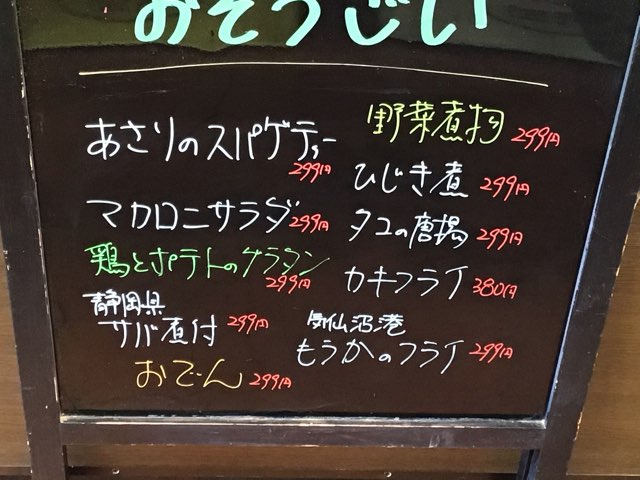 おそうざい
あさりのスパゲティー
299円
マカロニサラダ 299円
鶏とポテトのグラタン
299円
静岡県
サバ煮付 299円
おでん 299円
野菜煮物 299円
ひじき煮 299円
タコの唐揚 299円
カキフライ 380円
気仙沼港
もうかのフライ 299円